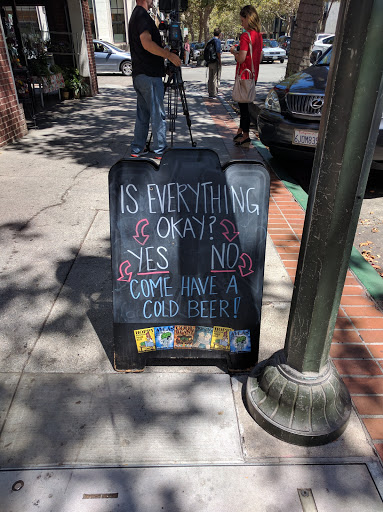 IS EVERYTHING
OKAY?
YES NO
COME HAVE A
COLD BEER!